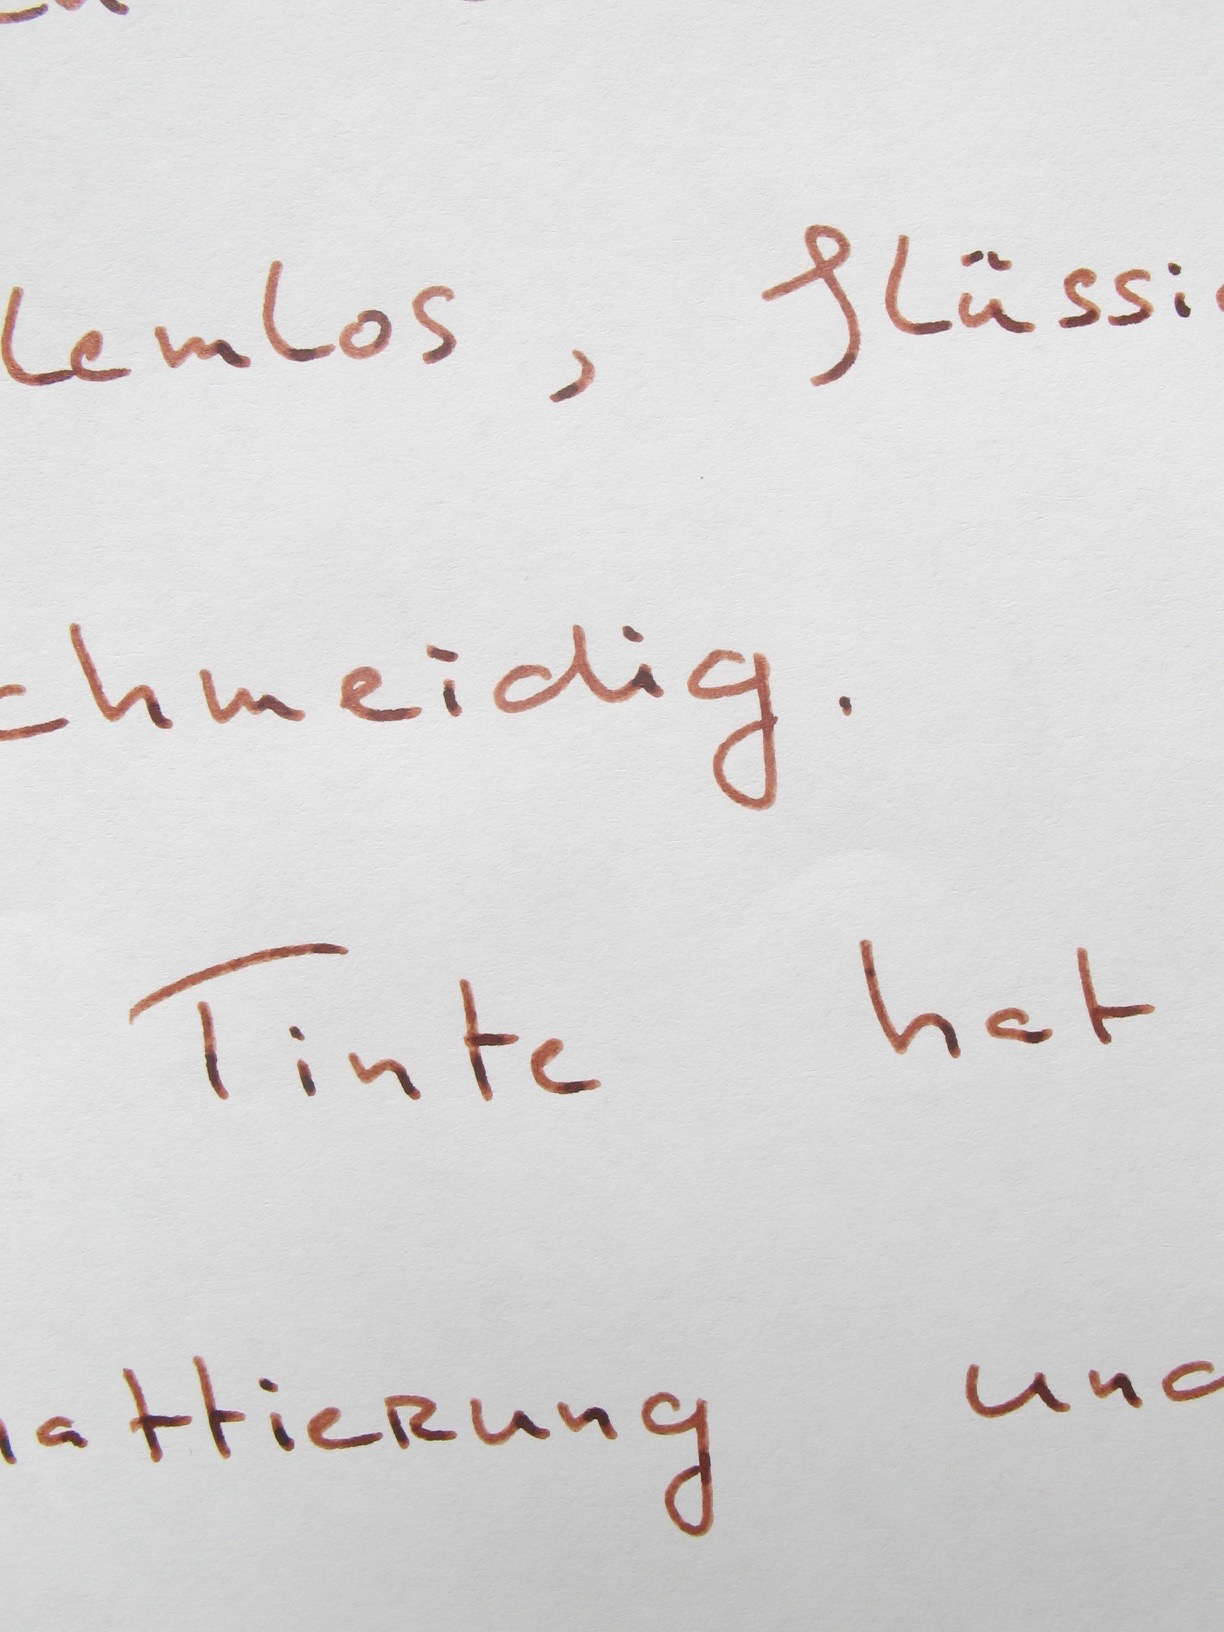 lemlos, flüssig
chmeidig.
Tinte hat
hattierung und